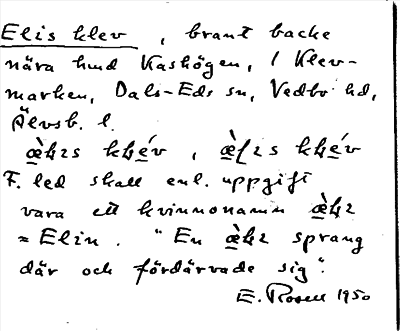 Elis klev, brant backe
nära hmd Kashögen, i Klev-
marken, Dals-Eds sn, Vedbo hd,
Älvsb. l.
F. led skall enl. uppgift
vara ett kvinnonamn
= Elin. "En sprang
där och fördärvade sig".
E. Rosell 1950